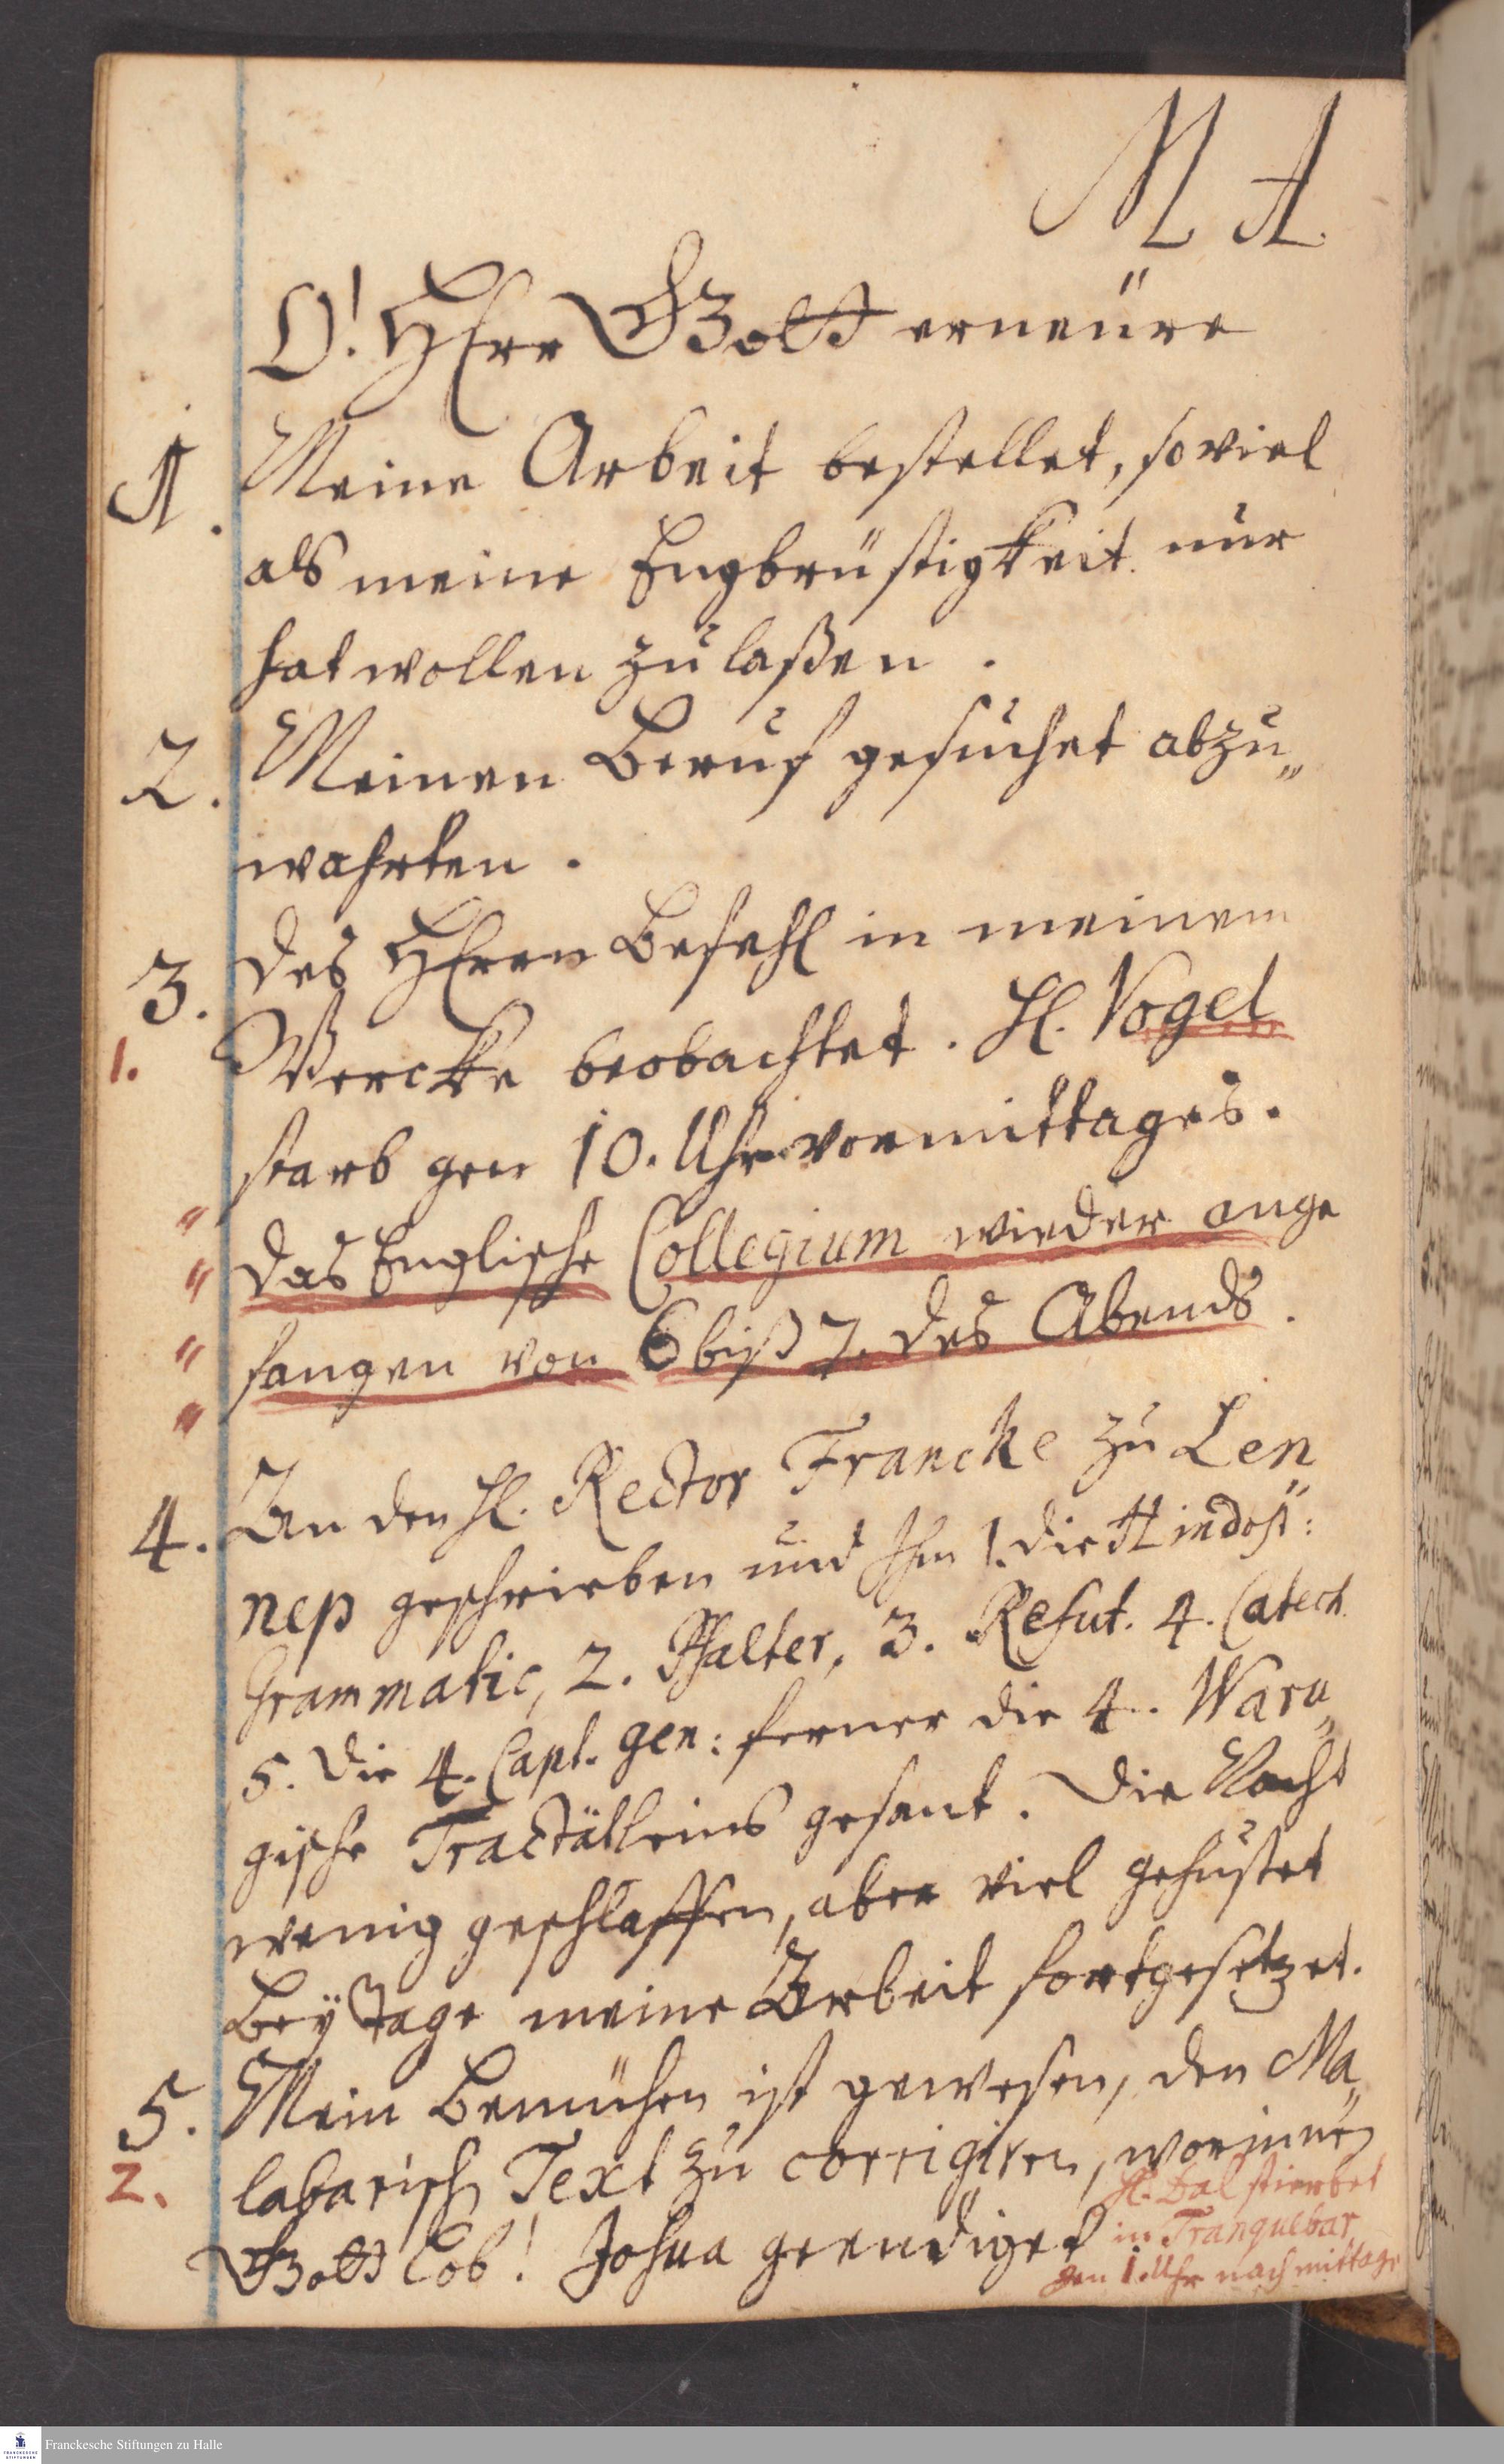 M A.
O! HErr GOtt erneüre
1. Meine Arbeit bestellet, so viel
als meine Engbrüstigkeit nur
hat wollen zulaßen.
2. Meinen Beruf gesuchet abzu„
wahrten.
3. Des HErrn Befehl in meinem
1. Wercke beobachtet. H. Vogel
starb gen 10. Uhr vormittages.
" Das Englische Collegium wieder ange
" fangen von 6 biß 7. des Abends.
4. An den H. Rector Francke zu Len
nep geschrieben und Ihm 1. die Hindost:
Grammatic, 2. Psalter, 3. Refut. 4. Catech.
5. Die 4. Capt. gen: ferner die 4. Waru„
gische Tractätleins gesant. Die Nacht
wenig geschlaffen, aber viel gehustet
Bey Tage meine Arbeit fortgesetzet.
5. Mein Bemühen ist gewesen, den Ma„
2. labarisch Text zu corrigiren, worinnen
GOtt Lob! Josua geendiget
H. Dal stirbet
in Tranquebar
gen 1. Uhr nachmittage
Franckesche Stiftungen zu Halle